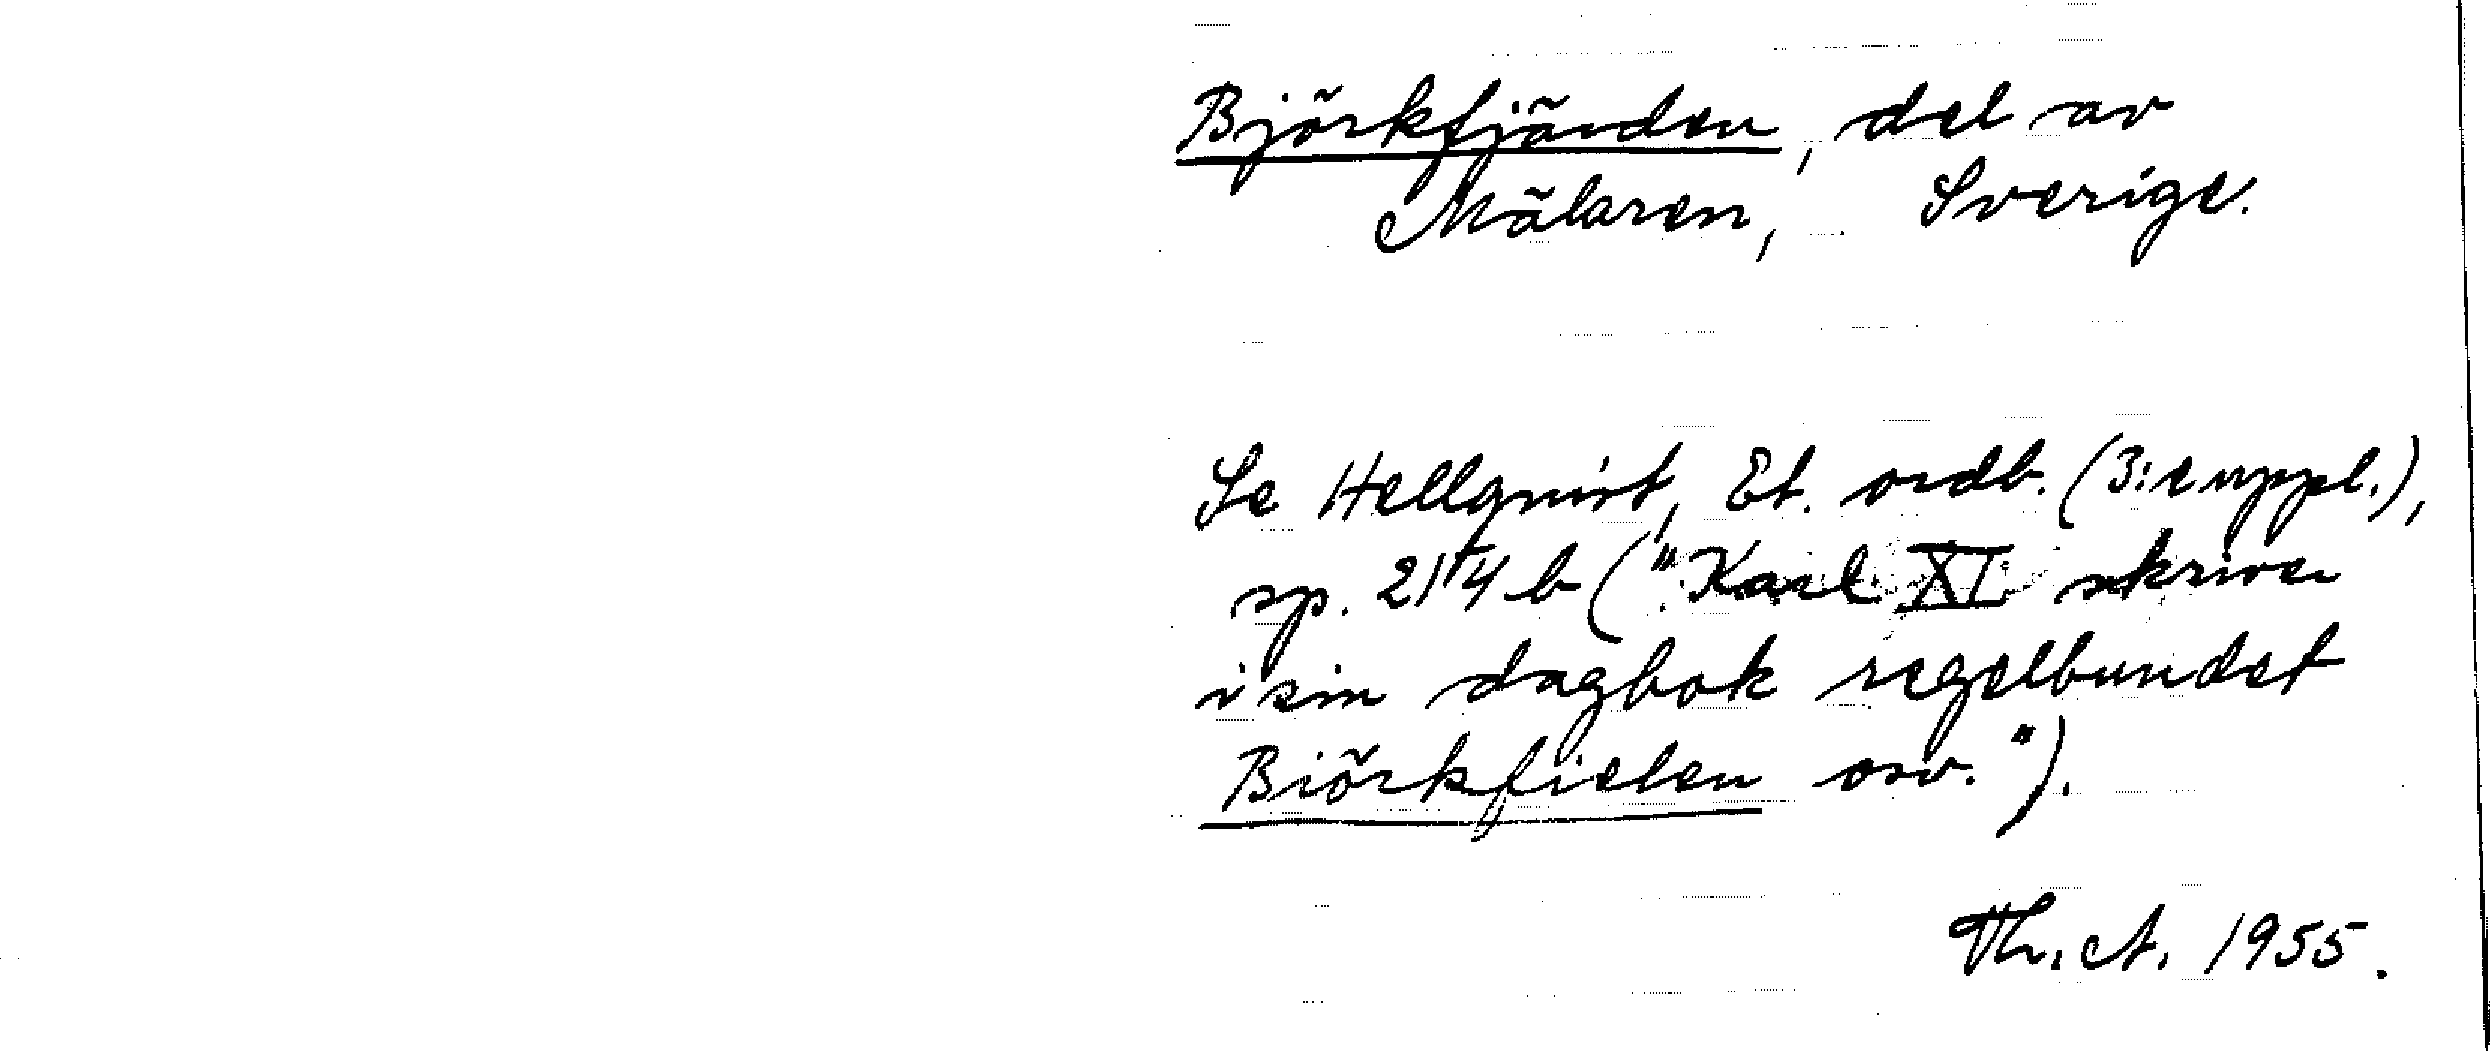 Björkfjärden, del av
Mälaren, Sverige.
Se Hellquist, Et. ordb. (3:e uppl.),
sp. 214 b ("Karl XI skriver
i sin dagbok regelbundet
Biörkfielen osv.").
Th. A. 1955.